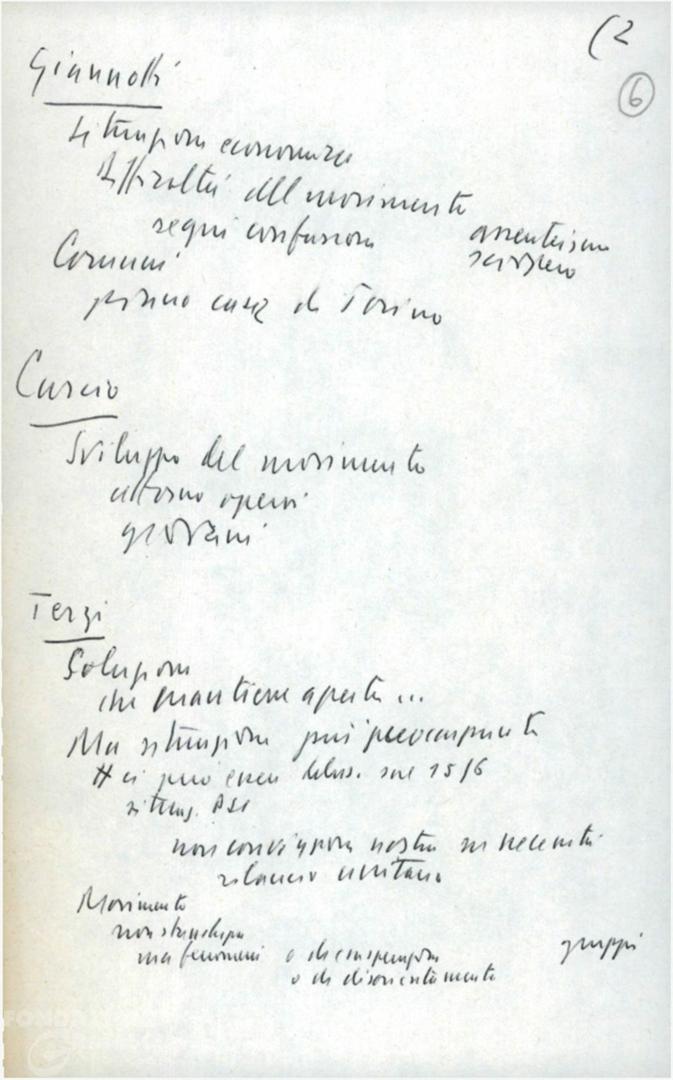 (2
6
Giannotti
situazione economica
difficoltà del movimento
segni confusione
assenteismo
sciopero
Comuni
primo casa di Torino
Cuscio
Sviluppo del movimento
intorno operai
giovani
Terzi
Soluzione
che mantiene aperte ...
Ma situazione più preoccupante
ci può essere delus. sul 15/6
situaz. PSI
non convinzione nostra su necessità
rilancio unitario
Movimento
non
ma fenomeni o di
o di disorientamento
gruppi
FONDAZIONE